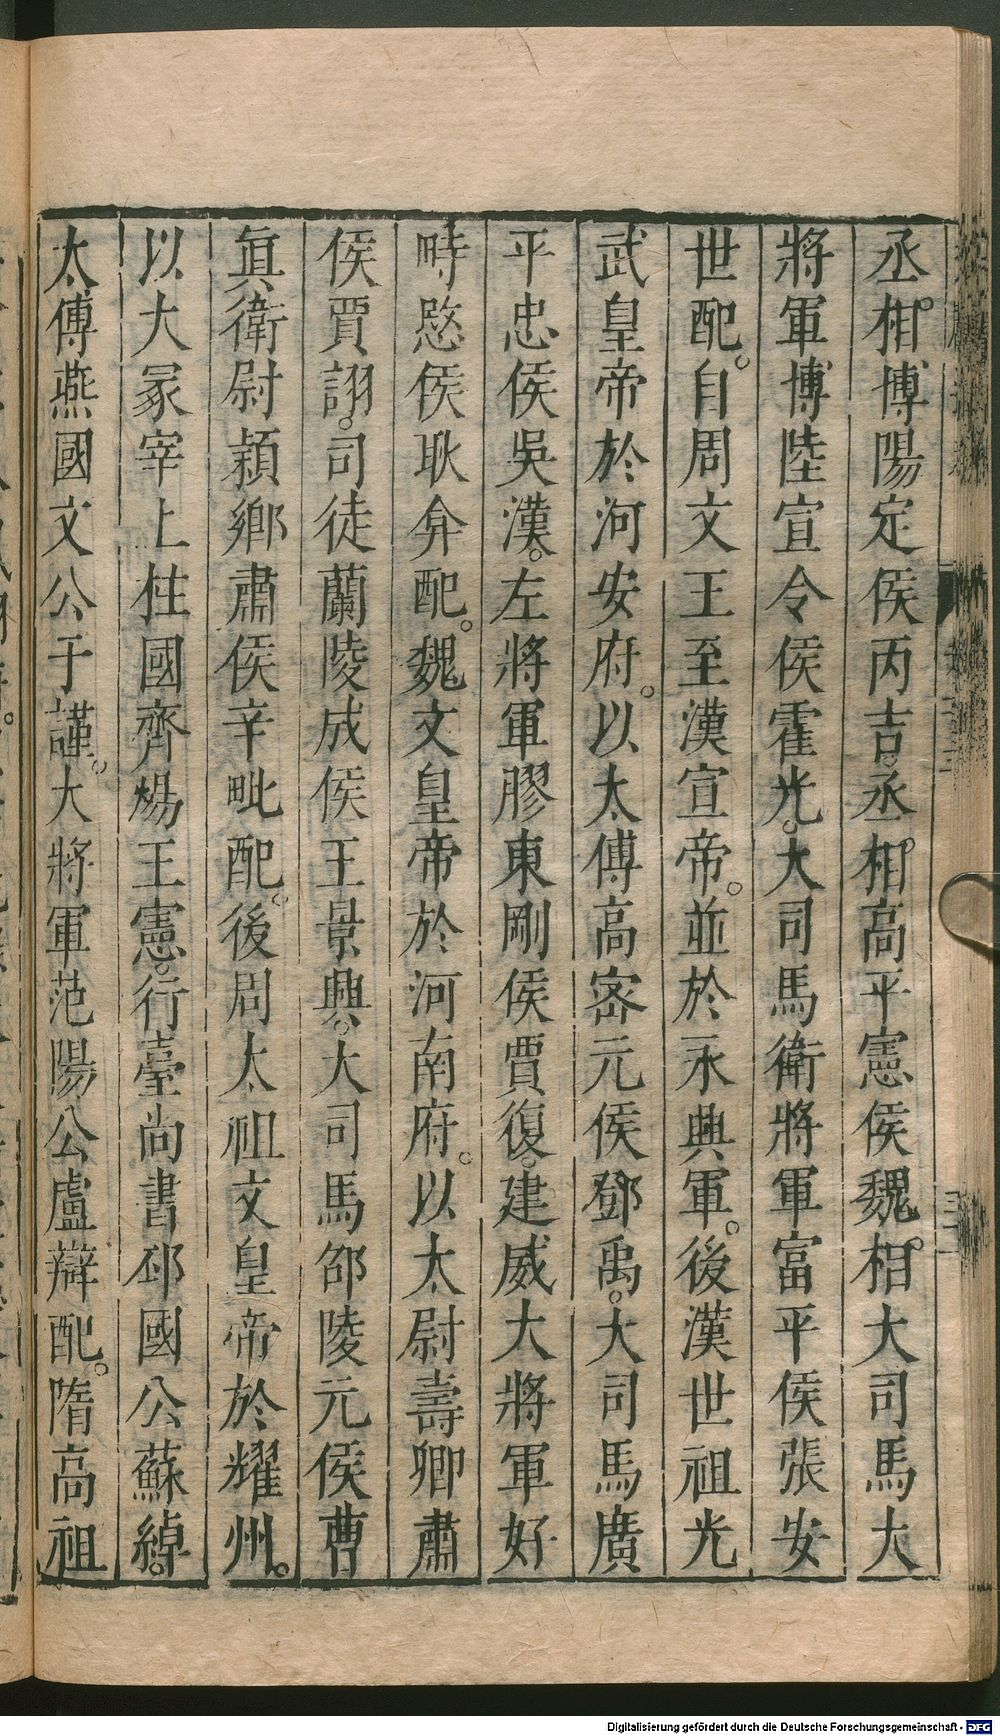 丞相博陽定侯丙吉丞相高平憲侯魏相大司馬大
將軍博陸宣令侯霍光大司馬衛將軍富平侯張安
世配自周文王至漢宣帝並於永興軍後漢世祖光
武皇帝於河安府以太傅高密元侯鄧禹大司馬廣
平忠侯吳漢左將軍膠東剛侯賈復建威大將軍好
畤愍侯耿弇配魏文皇帝於河南府以太尉壽卿肅
侯賈詡司徒蘭陵成侯王景興大司馬邵陵元侯曹
真衛尉潁鄉肅侯辛毗配後周太祖文皇帝於耀州
以大冢宰上柱國齊楊王憲行臺尚書邳國公蘇綽
太傅燕國文公于謹大將軍范陽公盧辯配隋高祖
Digitalisierung gefördert durch die Deutsche Forschungsgemeinschaft - DFG